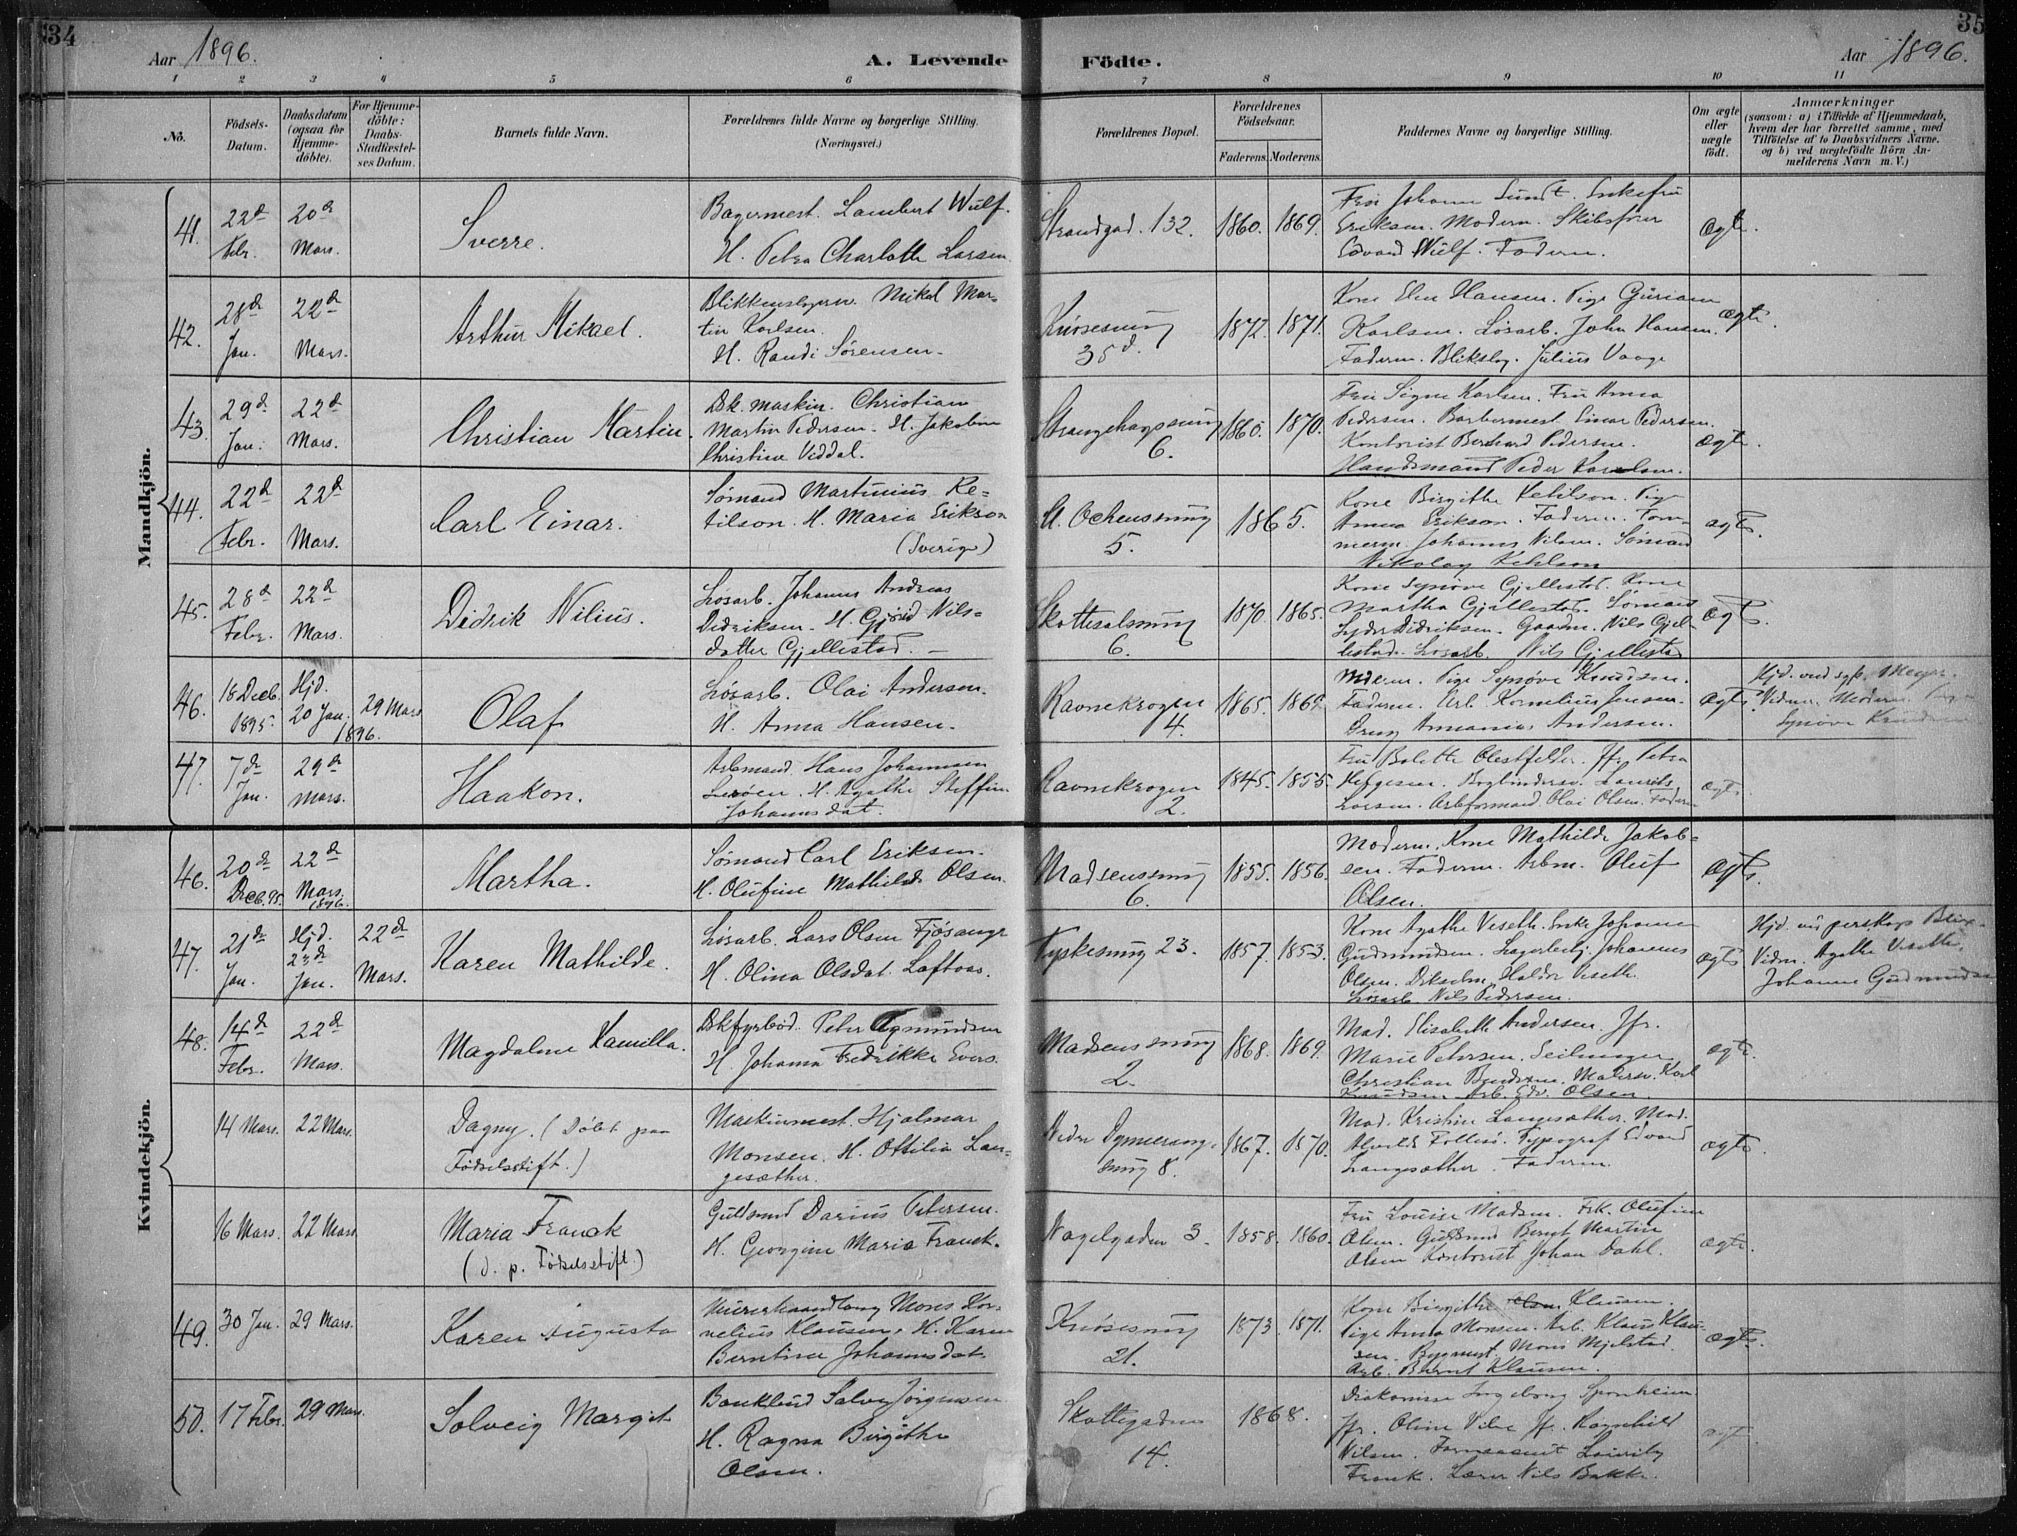 34
35
Aar 1896.
A. Levende Födte.
Aar 1896.
1 2 3 4 5 6 7 8 9 10 11
Nö.
Födsels-Datum.
Daabsdatum (ogsaa for Hjemme-döbte).
For Hjemme-döbte: Daabs-Stadfæstel-ses Datum.
Barnets fulde Navn.
Forældrenes fulde Navne og borgerlige Stilling. (Næringsvei.)
Forældrenes Bopæl.
Forældrenes Födselsaar.
Faderens. Moderens.
Faddernes Navne og borgerlige Stilling.
Om ægte eller uægte födt.
Anmærkninger
(saasom: a) i Tilfælde af Hjemmedaab,
hvem der har forrettet samme, med
Tilföielse af to Daabsvidners Navne.
og b) ved uægtefödte Börn An-
melderens Navn m. V.)
Mandkjön.
41. 22d Febr. 20d Mars. Sverre.
Bagermest. Lambert Wulf.
H. Petra Charlotte Larsen
Strandgad. 132. 1860. 1869.
Fru Johanne Sundt. Enkefru
Eriksen. Modern. Skibsfører
Edvard Wulf. Fadern.
ægte.
42. 28d Jan. 22d Mars. Arthur Mikael.
Blikkenslager Mikal Mar-
tin Karlsen.
H. Randi Sørensen.
Knøsesmug 35d. 1872. 1871.
Kone Elen Hansen. Pige Guriane
Karlsen. Løsarb. John Hansen.
Fadern. Bliksl. Julius Vaage
ægte.
43. 29d Jan. 22d Mars. Christian Martin.
Dsk. maskin. Christian
Martin Pedersen. H. Jakobine
Christine Viddal.
Strangehagesmug 6. 1860. 1870.
Fru Signe Karlsen. Fru Anna
Pedersen. Barbermest Einar Pedersen.
Kontorist Bernhard Pedersen.
Handsmand Peder
ægte.
44. 22d Febr. 22d Mars. Carl Einar.
Sømand Martinius Ke-
tilson. H. Maria Erikson
(Sverige)
5. 1865.
Kone Birgithe Ketilson. Pige
Anna Erikson. Fadern. Tøm-
merm. Johannes Nilsen. Sømand
Nikolay Ketilson
ægte.
45. 28d Febr. 22d Mars. Didrik Nilius.
Løsarb. Johannes Andreas
Didriksen. H. Gjørid Nils-
datter Gjellestad.
Skottesalsmug 6. 1870. 1865.
Kone Synøve Gjellestad. Kone
Martha Gjellestad. Sømand
Didriksen. Gaardm. Nils Gjel-
lestad. Løsarb. Nils Gjellestad
ægte.
46. 18 Decb. 1895. Hjd. 20 Jan. 1896. 29 Mars Olaf
Løsarb. Olai Andersen.
H. Anna Hansen.
Ravnekrogen 4. 1865. 1869.
Modern. Pige Synøve Knudsen.
Fadern. Arb. Kornelius Jensen.
Ananias Andersen.
ægte.
Hjd. ved Meyer.
Vidner. Modern.
Synøve Knudsen
47. 7de Jan. 29d Mars. Haakon.
Arbmand. Hans Johannesen
Lerøen. H. Agathe Steffine
Johannsdat.
Ravnekrogen 2. 1845. 1855.
Fru Bolette Jfr. Petra
Bogbinder. Laurits
Larsen. Arbformand Olai Olsen. Fadern
ægte.
Kvindekjön.
46. 20de Decb. 95. 22d Mars. 1896. Martha.
Sømand Carl Eriksen.
H. Olufine Mathilde Olsen.
Madsensmug 6. 1855. 1856.
Modern. Kone Mathilde Jakob-
sen. Fadern. Arbm. Oluf
Olsen.
ægte.
47. 21de Jan. Hjd. Jan. 22de Mars. Karen Mathilde.
Løsarb. Lars Olsen Fjøsanger
H. Olina Olsdat. Loftaas.
Tyskesmug 23. 1857. 1853.
Kone Agathe Veseth. Enke Johanne
Gudmundsen. Johannes
Olsen. Haldor Veseth.
Løsarb. Nils Pedersen.
ægte
Vidn. Agathe Veseth.
Johanne Gudmundsen
48. 14d Febr. 22d Mars. Magdalene Kamilla.
Dskfyrbød. Peter Amundsen
H. Johanna Fredrikke Evers.
Madsenssmug 2. 1868. 1869.
Mad. Elisabeth Andersen. Jfr.
Marie Petersen. Seilmager
Christian Bendixen. Malersv. Karl
Knudsen. Arb. Edv. Olsen.
ægte
14 Mars. 22 Mars. Dagny. (Døbt paa
Fødselsstift.)
Maskinmest. Hjalmar
Monsen. H. Ottilia Lan-
gesæther.
Nedre Dynnersmug
smug 8. 1867. 1870.
Mad. Kristine Langesæther. Mad.
Alvilde Follesø. Typograf Edvard
Langesæther. Fadern.
ægte
16 Mars. 22 Mars. Maria Franck
(d. p. Fødselsstift.)
Guldsmed Darius Petersen.
H. Georgine Maria Franck.
Nagelgaden 3. 1858. 1860.
Fru Louise Madsen. Frk. Olufine
Olsen. Guldsmed Bernt Martin
Olsen Kontorist Johan Dahl.
ægte.
49. 30 Jan. 29 Mars. Karen Augusta
Murerhaandlang Mons Kor-
nelius Klausen. H. Karen
Berntine Johannsdat.
Knøsesmug 21. 1873. 1871.
Kone Birgithe Klausen.
Pige Anna Monsen. Arb. Klaus Klau-
sen. Bygmest. Mons Mjelstad.
Arb. Bernt Klausen.
ægte.
50. 17 Febr. 29 Mars. Solveig Margit
Bankbud Salve Jørgensen
H. Ragna Birgithe
Olsen.
Skottegaden 14. 1868.
Diakonisse Ingeborg Sponheim
Jfr. Oline Jfr. Ragnhild
Nilsen.
Frank. Lærer Nils Bakke.